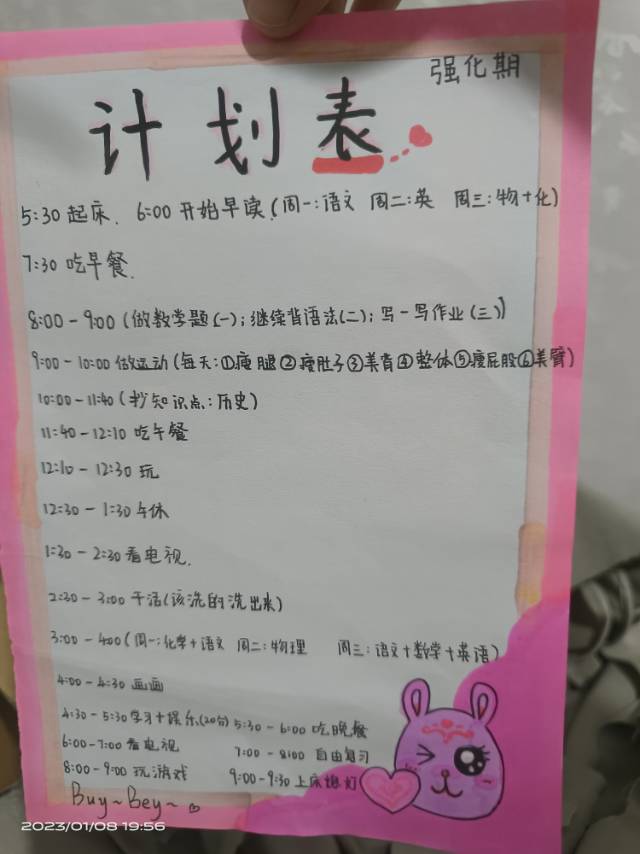 强化期
计划表
5:30 起床. 6:00 开始早读(周一:语文 周二:英 周三:物+化)
7:30 吃早餐.
8:00-9:00 (做数学题(一);继续背语法(二);写一写作业(三))
9:00-10:00 做运动(每天:①瘦腿②瘦肚子③美背④整体⑤瘦屁股⑥美臂)
10:00-11:40 (抄知识点:历史)
11:40-12:10 吃午餐
12:10-12:30 玩
12:30-1:30 午休
1:30-2:30 看电视.
2:30-3:00 干活(该洗的洗出来)
3:00-4:00 (周一:化学+语文 周二:物理 周三:语文+数学+英语)
4:00-4:30 画画
4:30-5:30 学习+娱乐(20分) 5:30-6:00 吃晚餐
6:00-7:00 看电视 7:00-8:00 自由复习
8:00-9:00 玩游戏 9:00-9:30 上床熄灯
Buy~Bey~
2023/01/08 19:56